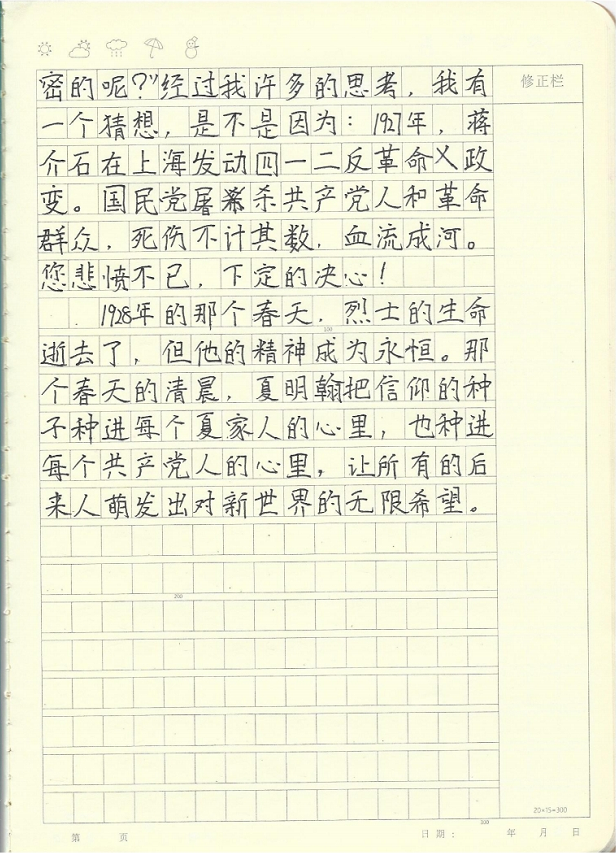 修正栏
密的呢?”经过我许多的思考，我有
一个猜想，是不是因为：1927年，蒋
介石在上海发动四一二反革命义政
变。国民党屠杀共产党人和革命
群众，死伤不计其数，血流成河。
您悲愤不已，下定的决心！
1928年的那个春天，烈士的生命
100
逝去了，但他的精神成为永恒。那
个春天的清晨，夏明翰把信仰的种
子种进每个夏家人的心里，也种进
每个共产党人的心里，让所有的后
来人萌发出对新世界的无限希望。
200
20×15=300
300
第 页 日期： 年 月 日